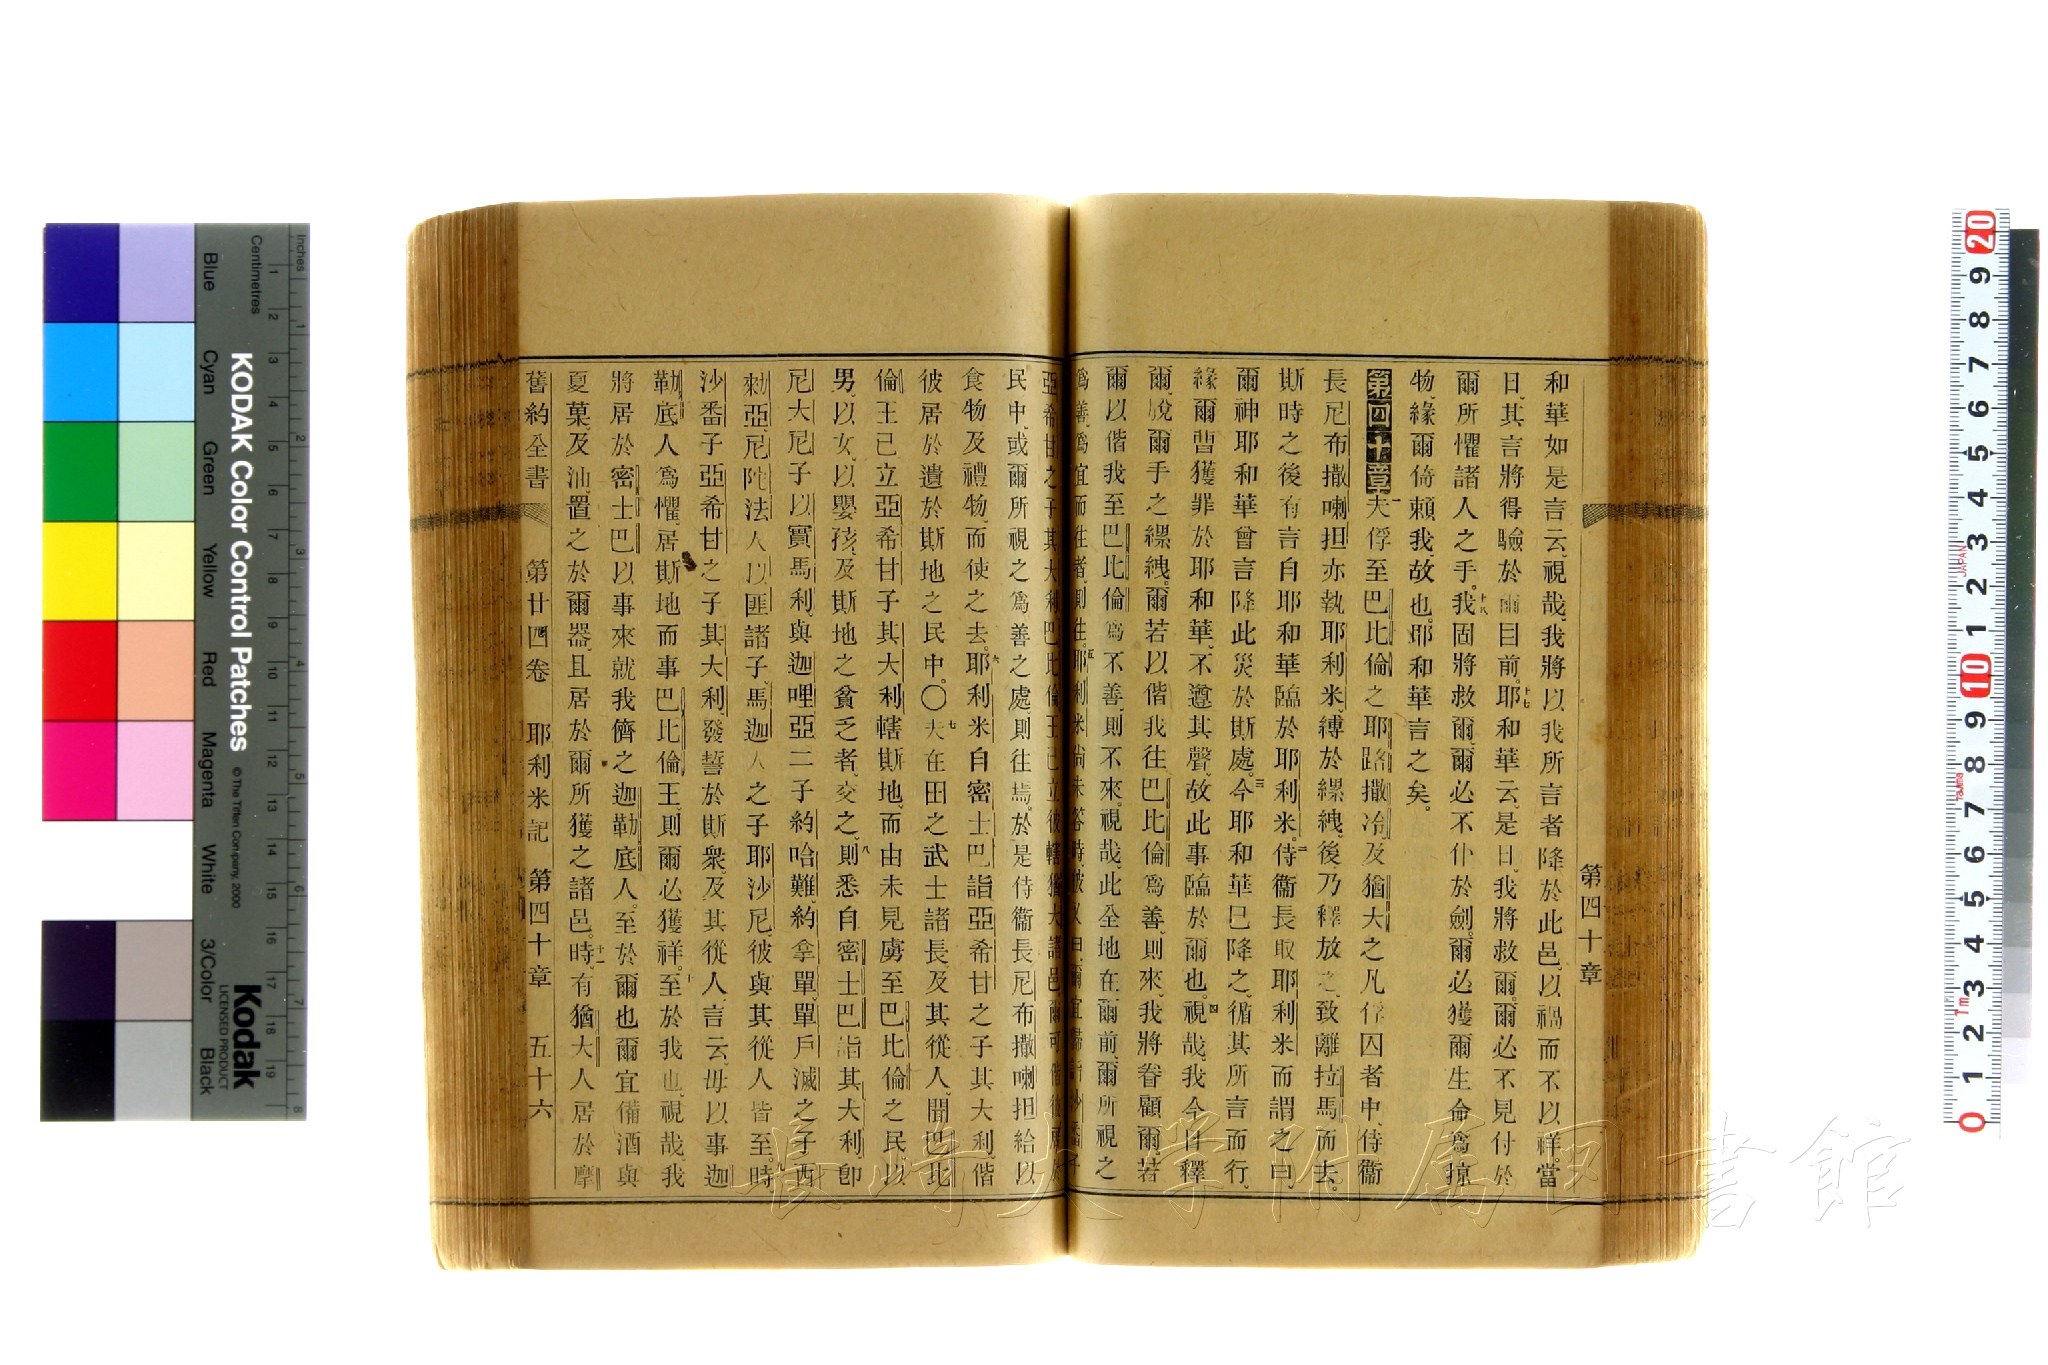 第四十章
和華如是言云、視哉、我將以我所言者降於此邑、以禍而不以祥、當
日、其言將得驗於爾目前。十七耶和華云、是日、我將救爾、爾必不見付於
爾所懼諸人之手。十八我固將救爾、爾必不仆於劍、爾必獲爾生命爲掠
物、緣爾倚賴我故也、耶和華言之矣。
第四十章一夫俘至巴比倫之耶路撒冷、及猶大之凡俘囚者中、侍衞
長尼布撒喇担亦執耶利米、縛於縲絏、後乃釋放之、致離拉馬而去。
斯時之後、有言自耶和華臨於耶利米。二侍衞長取耶利米而謂之曰、
爾神耶和華曾言降此災於斯處。三今耶和華已降之、循其所言而行、
緣爾曹獲罪於耶和華、不遵其聲、故此事臨於爾也。四視哉、我今日釋
爾、脫爾手之縲絏。爾若以偕我往巴比倫爲善、則來、我將眷顧爾、若
爾以偕我至巴比倫爲不善、則不來。視哉、此全地在爾前、爾所視之
爲善、爲宜而往者、則往。五耶利米尚未答時、彼又曰、爾宜歸詣沙番子
亞希甘之子其大利、巴比倫王已立彼轄猶大諸邑、爾可偕彼居於
民中、或爾所視之爲善之處、則往焉。於是侍衞長尼布撒喇担給以
食物及禮物、而使之去。六耶利米自密士巴詣亞希甘之子其大利、偕
彼居於遺於斯地之民中。〇七夫在田之武士諸長及其從人、聞巴比
倫王已立亞希甘子其大利轄斯地、而由未見虜至巴比倫之民、以
男、以女、以嬰孩、及斯地之貧乏者、交之、八則悉自密士巴詣其大利、卽
尼大尼子以實馬利、與迦哩亞二子約哈難、約拿單、單戶滅之子西
勑亞、尼陀法人以匪諸子、馬迦人之子耶沙尼、彼與其從人皆至。時
沙番子亞希甘之子其大利、發誓於斯衆、及其從人、言云、毋以事迦
勒底人爲懼、居斯地而事巴比倫王、則爾必獲祥。十至於我也、視哉、我
將居於密士巴以事來就我儕之迦勒底人。至於爾也、爾宜備酒與
夏菓及油、置之於爾器、且居於爾所獲之諸邑。十一時、有猶大人居於摩
舊約全書 第廿四卷 耶利米記 第四十章 五十六
Inches
Centimetres
Blue
Cyan
Green
Yellow
Red
Magenta
White
3/Color
Black
KODAK Color Control Patches
© The Tiffen Company, 2000
Kodak
LICENSED PRODUCT
長崎大学附属図書館